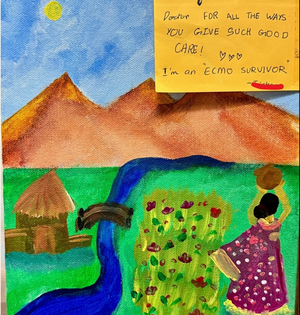 Doctor FOR ALL THE WAYS
YOU GIVE SUCH GOOD
CARE!
I'm an "ECMO SURVIVOR"